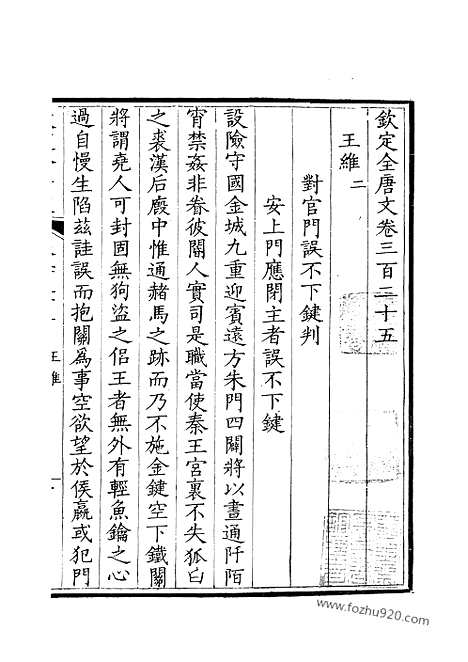 欽定全唐文卷三百二十五
王維二
對官門誤不下鍵判
安上門應閉主者誤不下鍵
設險守國金城九重迎賓遠方朱門四闢將以晝通阡陌
宵禁姦非眷彼閽人實司是職當使秦王宮裏不失狐白
之裘漢后廄中惟通赭馬之跡而乃不施金鍵空下鐵關
將謂堯人可封固無狗盜之侶王者無外有輕魚鑰之心
過自慢生陷茲詿誤而抱關為事空欲望於侯嬴或犯門
王維
www.fozhu920.com